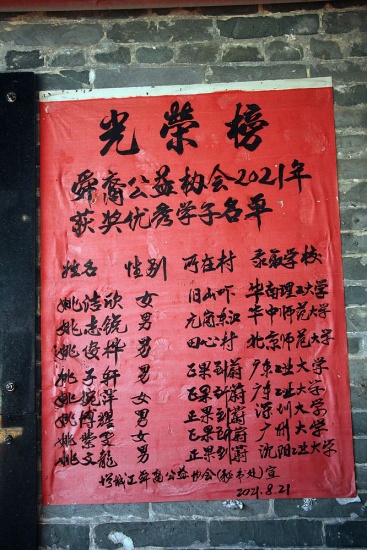 光荣榜
舜裔公益协会2021年
获奖优秀学子名单
姓名 性别 所在村 录取学校
姚洁欣 女 旧山吓 华南理工大学
姚志锐 男 元岗东江 华中师范大学
姚俊桦 男 田心村 北京师范大学
姚子轩 男 正果到蔚 广东工业大学
姚婉萍 女 正果到蔚 广东工业大学
姚博耀 男 正果到蔚 深圳大学
姚紫雯 女 正果到蔚 广州大学
姚文龙 男 正果到蔚 沈阳工业大学
增城江舜裔公益协会(秘书处)宣
2021.8.21